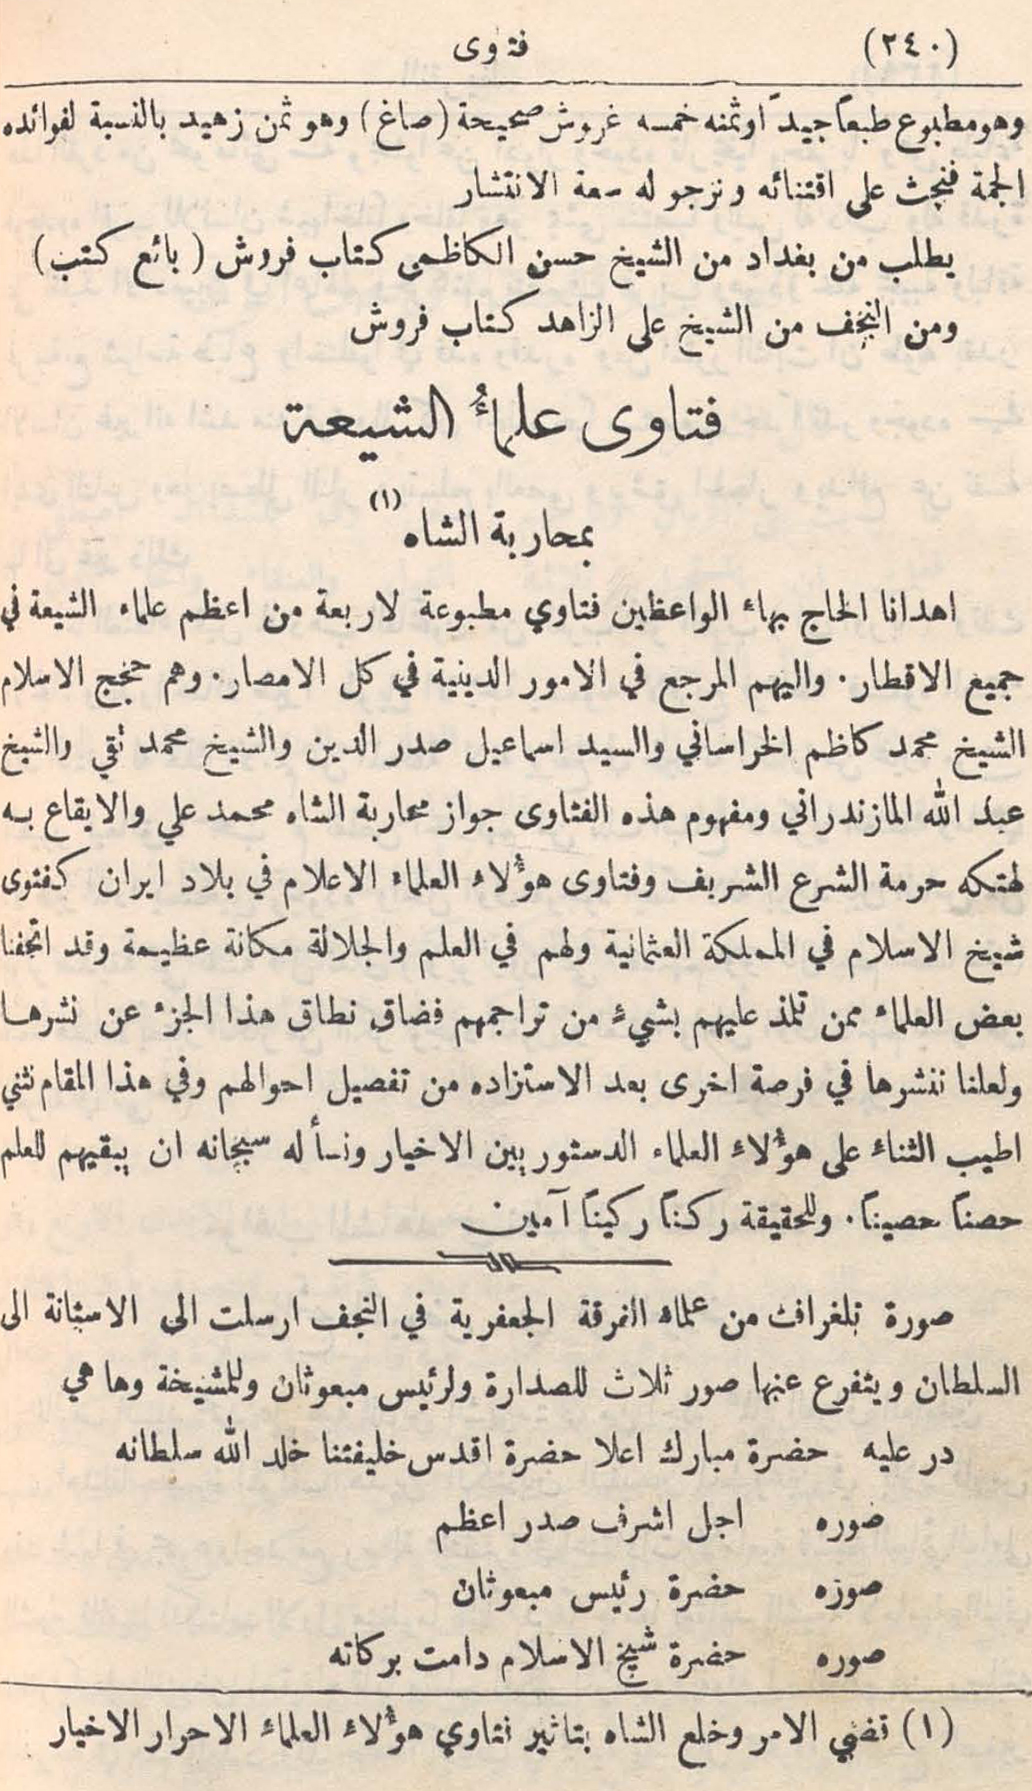 (٢٤٠) فتوى
وهو مطبوع طبعاً جيداً وثمنه خمسه غروش صحيحة (صاغ) وهو ثمن زهيد بالنسبة لفوائده
الجمة فنحث على اقتنائه ونرجو له سعة الانتشار
يطلب من بغداد من الشيخ حسن الكاظمى كتاب فروش (بائع كتب)
ومن النجف من الشيخ على الزاهد كتاب فروش
فتاوى علماء الشيعة
بمحاربة الشاه (١)
اهدانا الحاج بهاء الواعظين فتاوي مطبوعة لاربعة من اعظم علماء الشيعة في
جميع الاقطار. واليهم المرجع في الامور الدينية في كل الامصار. وهم حجج الاسلام
الشيخ محمد كاظم الخراساني والسيد اسماعيل صدر الدين والشيخ محمد تقي والشيخ
عبد الله المازندراني ومفهوم هذه الفتاوى جواز محاربة الشاه محمد علي والايقاع به
لهتكه حرمة الشرع الشريف وفتاوى هؤلاء العلماء الاعلام في بلاد ايران كفتوى
شيخ الاسلام في المملكة العثمانية ولهم في العلم والجلالة مكانة عظيمة وقد اتحفنا
بعض العلماء ممن تلمذ عليهم بشيء من تراجمهم فضاق نطاق هذا الجزء عن نشرها
ولعلنا ننشرها في فرصة اخرى بعد الاستزاده من تفصيل احوالهم وفي هذا المقام نثني
اطيب الثناء على هؤلاء العلماء الدستوريين الاخيار ونسأله سبحانه ان يبقيهم للعلم
حصناً حصيناً. وللحقيقة ركناً ركيناً آمين
صورة تلغراف من علماء الفرقة الجعفرية في النجف ارسلت الى الاستانة الى
السلطان ويتفرع عنها صور ثلاث للصدارة ولرئيس مبعوثان وللمشيخة وها هي
در عليه حضرة مبارك اعلا حضرة اقدس خليفتنا خلد الله سلطانه
صوره اجل اشرف صدر اعظم
صوره حضرة رئيس مبعوثان
صوره حضرة شيخ الاسلام دامت بركاته
(١) تضي الامر وخلع الشاه بتاثير فتاوي هؤلاء العلماء الاحرار الاخيار